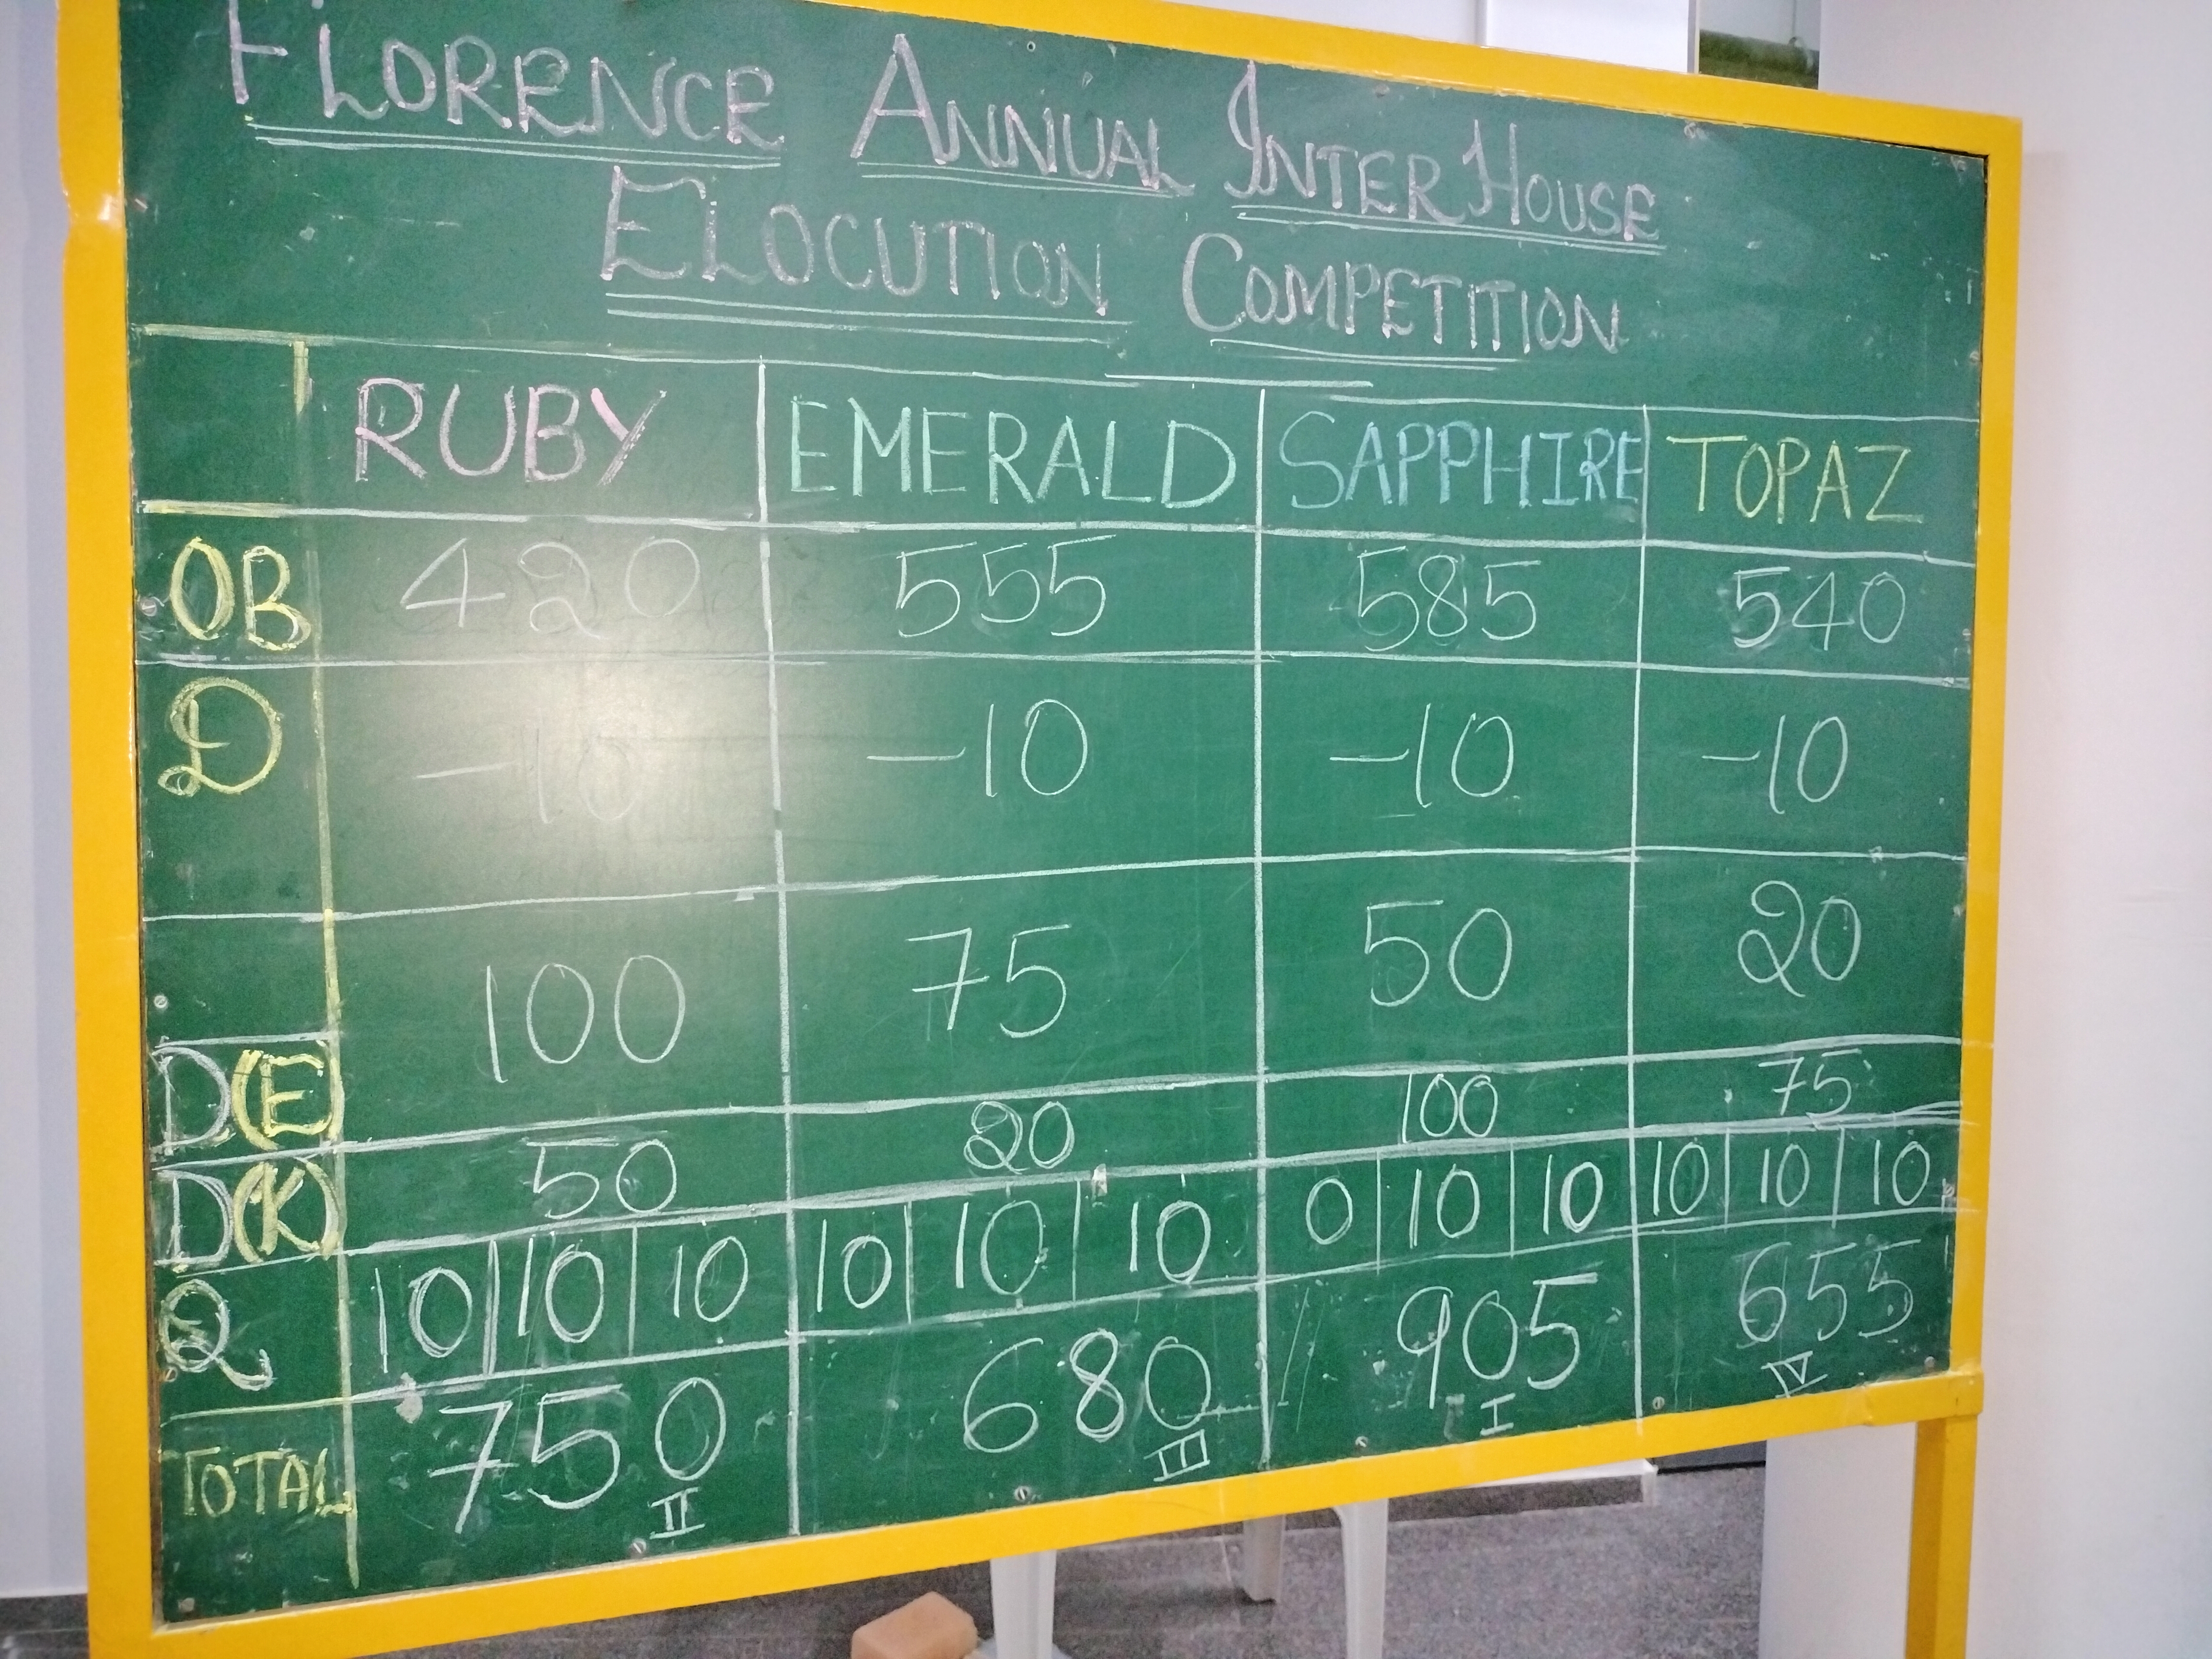 FLORENCE ANNUAL INTER HOUSE
ELOCUTION COMPETITION
RUBY EMERALD SAPPHIRE TOPAZ
OB 420 555 585 540
D -10 -10 -10 -10
D(E) 100 75 50 20
D(K) 50 20 100 75
Q 10 10 10 10 10 10 0 10 10 10 10 10
TOTAL 750 680 905 655
II III I IV